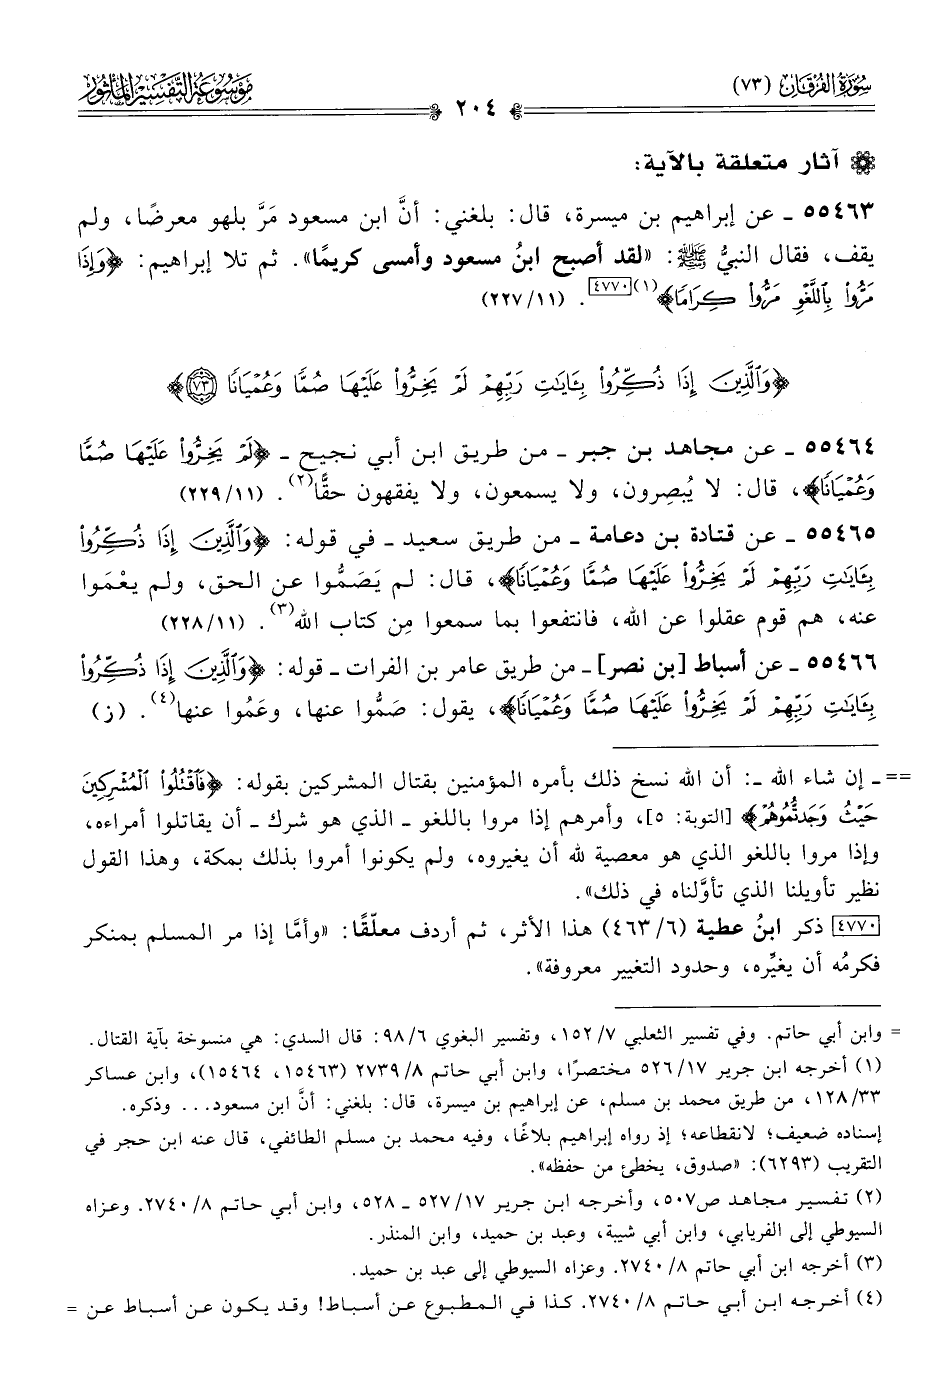 سُورَةُ الفُرْقَان (٧٣)
مَوْسُوعَة التَّفْسِيْر المَأْثُور
٢٠٤
آثار متعلقة بالآية:
٥٥٤٦٣ ـ عن إبراهيم بن ميسرة، قال: بلغني: أنَّ ابن مسعود مَرَّ بلهو معرضًا، ولم
يقف، فقال النبيُّ ﷺ: «لقد أصبح ابنُ مسعود وأمسى كريمًا». ثم تلا إبراهيم: ﴿وَإِذَا
مَرُّواْ بِٱللَّغْوِ مَرُّواْ كِرَامًا﴾(١)[٤٧٧٠]. (١١/ ٢٢٧)
﴿وَٱلَّذِينَ إِذَا ذُكِّرُواْ بِـَٔايَٰتِ رَبِّهِمْ لَمْ يَخِرُّواْ عَلَيْهَا صُمًّا وَعُمْيَانًا ٧٣﴾
٥٥٤٦٤ ـ عن مجاهد بن جبر ـ من طريق ابن أبي نجيح ـ ﴿لَمْ يَخِرُّواْ عَلَيْهَا صُمًّا
وَعُمْيَانًا﴾، قال: لا يُبصِرون، ولا يسمعون، ولا يفقهون حقًّا(٢). (١١/ ٢٢٩)
٥٥٤٦٥ ـ عن قتادة بن دعامة ـ من طريق سعيد ـ في قوله: ﴿وَٱلَّذِينَ إِذَا ذُكِّرُواْ
بِـَٔايَٰتِ رَبِّهِمْ لَمْ يَخِرُّواْ عَلَيْهَا صُمًّا وَعُمْيَانًا﴾، قال: لم يَصَمُّوا عن الحق، ولم يعْمَوا
عنه، هم قوم عقلوا عن الله، فانتفعوا بما سمعوا مِن كتاب الله(٣). (١١/ ٢٢٨)
٥٥٤٦٦ ـ عن أسباط [بن نصر] ـ من طريق عامر بن الفرات ـ قوله: ﴿وَٱلَّذِينَ إِذَا ذُكِّرُواْ
بِـَٔايَٰتِ رَبِّهِمْ لَمْ يَخِرُّواْ عَلَيْهَا صُمًّا وَعُمْيَانًا﴾، يقول: صَمُّوا عنها، وعَمُوا عنها(٤). (ز)
== ـ إن شاء الله ـ: أن الله نسخ ذلك بأمره المؤمنين بقتال المشركين بقوله: ﴿فَٱقْتُلُواْ ٱلْمُشْرِكِينَ
حَيْثُ وَجَدتُّمُوهُمْ﴾ [التوبة: ٥]، وأمرهم إذا مروا باللغو ـ الذي هو شرك ـ أن يقاتلوا أمراءه،
وإذا مروا باللغو الذي هو معصية لله أن يغيروه، ولم يكونوا أمروا بذلك بمكة، وهذا القول
نظير تأويلنا الذي تأوَّلناه في ذلك».
[٤٧٧٠] ذكر ابنُ عطية (٦/ ٤٦٣) هذا الأثر، ثم أردف معلّقًا: «وأمَّا إذا مر المسلم بمنكر
فكرمُه أن يغيِّره، وحدود التغيير معروفة».
= وابن أبي حاتم. وفي تفسير الثعلبي ٧/ ١٥٢، وتفسير البغوي ٦/ ٩٨: قال السدي: هي منسوخة بآية القتال.
(١) أخرجه ابن جرير ١٧/ ٥٢٦ مختصرًا، وابن أبي حاتم ٨/ ٢٧٣٩ (١٥٤٦٣، ١٥٤٦٤)، وابن عساكر
٣٣/ ١٢٨، من طريق محمد بن مسلم، عن إبراهيم بن ميسرة، قال: بلغني: أنَّ ابن مسعود... وذكره.
إسناده ضعيف؛ لانقطاعه؛ إذ رواه إبراهيم بلاغًا، وفيه محمد بن مسلم الطائفي، قال عنه ابن حجر في
التقريب (٦٢٩٣): «صدوق، يخطئ من حفظه».
(٢) تفسير مجاهد ص٥٠٧، وأخرجه ابن جرير ١٧/ ٥٢٧ ـ ٥٢٨، وابن أبي حاتم ٨/ ٢٧٤٠. وعزاه
السيوطي إلى الفريابي، وابن أبي شيبة، وعبد بن حميد، وابن المنذر.
(٣) أخرجه ابن أبي حاتم ٨/ ٢٧٤٠. وعزاه السيوطي إلى عبد بن حميد.
(٤) أخرجه ابن أبي حاتم ٨/ ٢٧٤٠. كذا في المطبوع عن أسباط! وقد يكون عن أسباط عن =